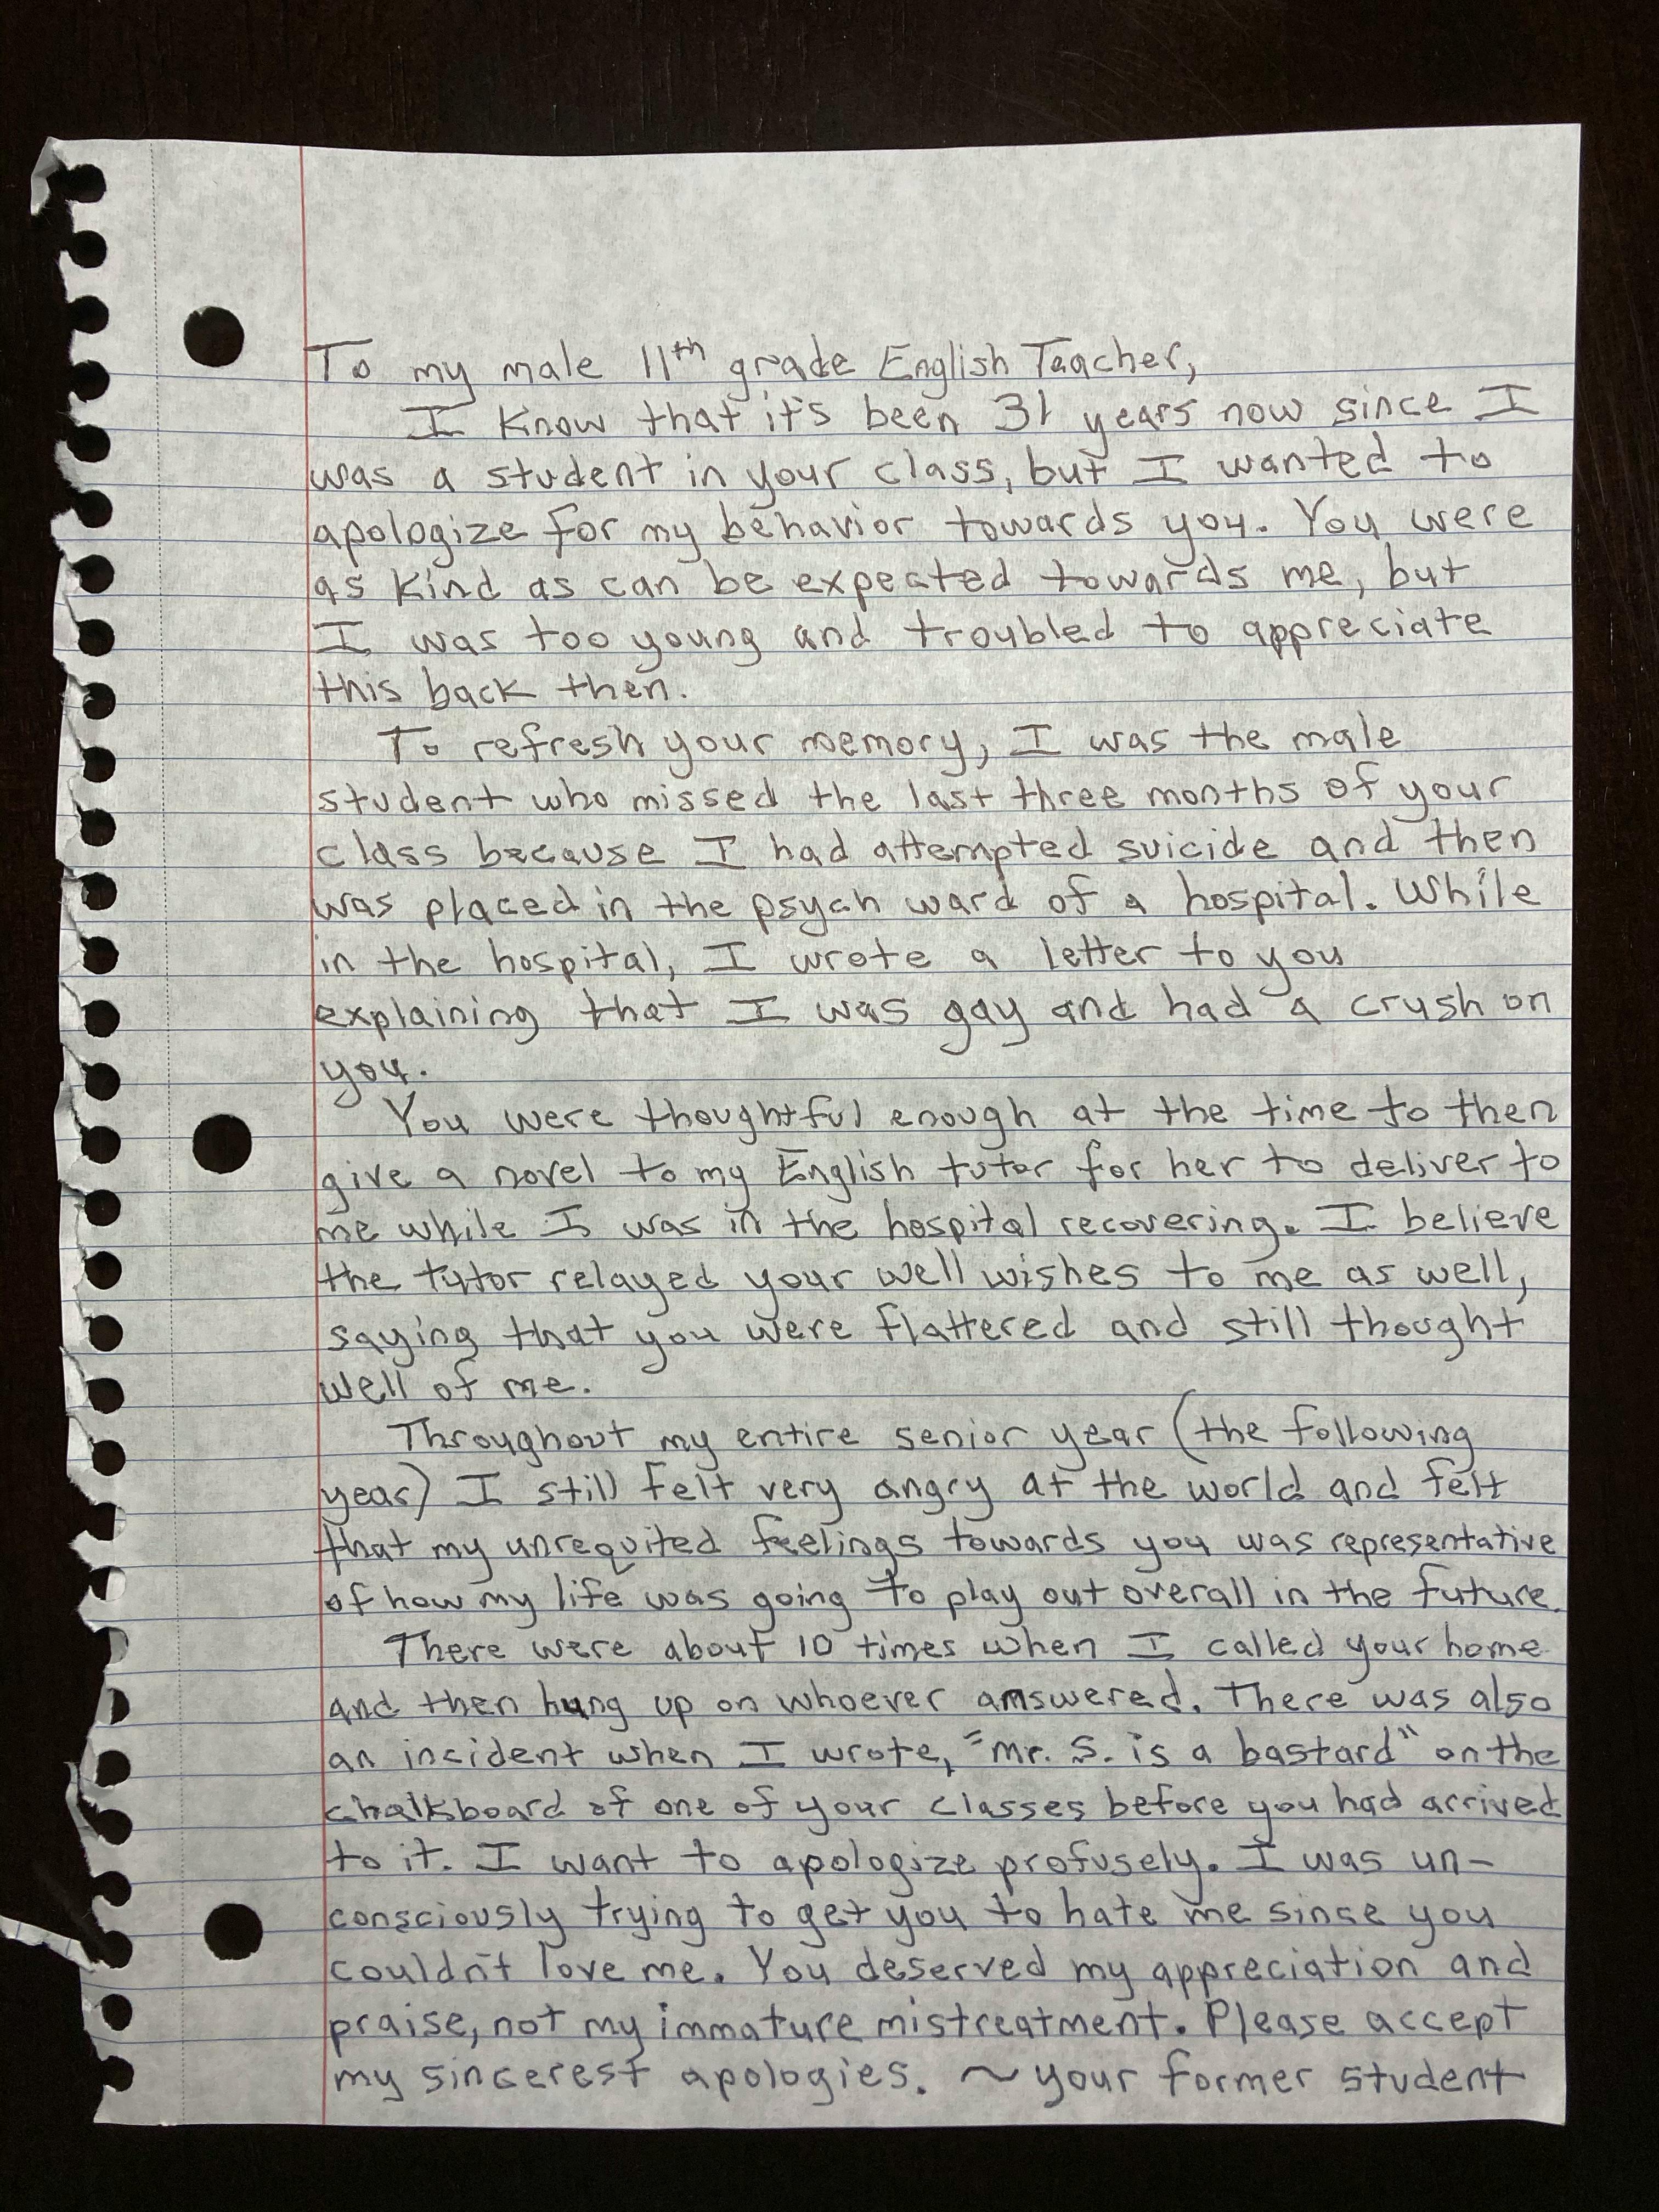 To my male 11th grade English Teacher,
I know that it's been 31 years now since I
was a student in your class, but I wanted to
apologize for my behavior towards you. You were
as kind as can be expected towards me, but
I was too young and troubled to appreciate
this back then.
To refresh your memory, I was the male
student who missed the last three months of your
class because I had attempted suicide and then
was placed in the psych ward of a hospital. While
in the hospital, I wrote a letter to you
explaining that I was gay and had a crush on
you.
You were thoughtful enough at the time to then
give a novel to my English tutor for her to deliver to
me while I was in the hospital recovering. I believe
the tutor relayed your well wishes to me as well,
saying that you were flattered and still thought
well of me.
Throughout my entire senior year (the following
year) I still felt very angry at the world and felt
that my unrequited feelings towards you was representative
of how my life was going to play out overall in the future.
There were about 10 times when I called your home
and then hung up on whoever answered. There was also
an incident when I wrote, "Mr. S. is a bastard" on the
chalkboard of one of your classes before you had arrived
to it. I want to apologize profusely. I was un-
consciously trying to get you to hate me since you
couldn't love me. You deserved my appreciation and
praise, not my immature mistreatment. Please accept
my sincerest apologies. ~ your former student